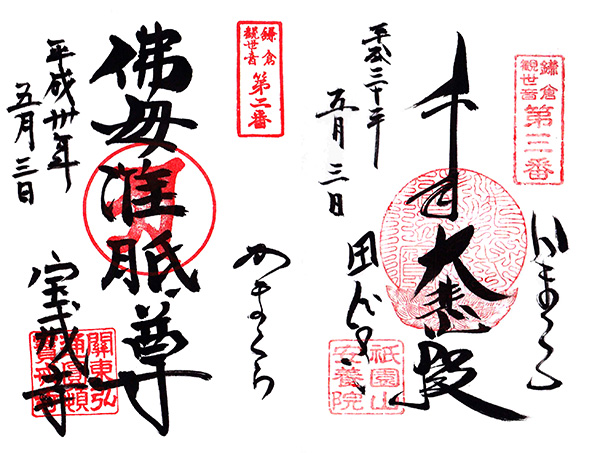 鎌倉
観世音
第三番
かまくら
千手大悲殿
祇園山
安養院
平成三十年
五月三日
鎌倉
観世音
第二番
かまくら
佛母准胝尊
宝戒寺
關東弘
平成卅年
五月三日